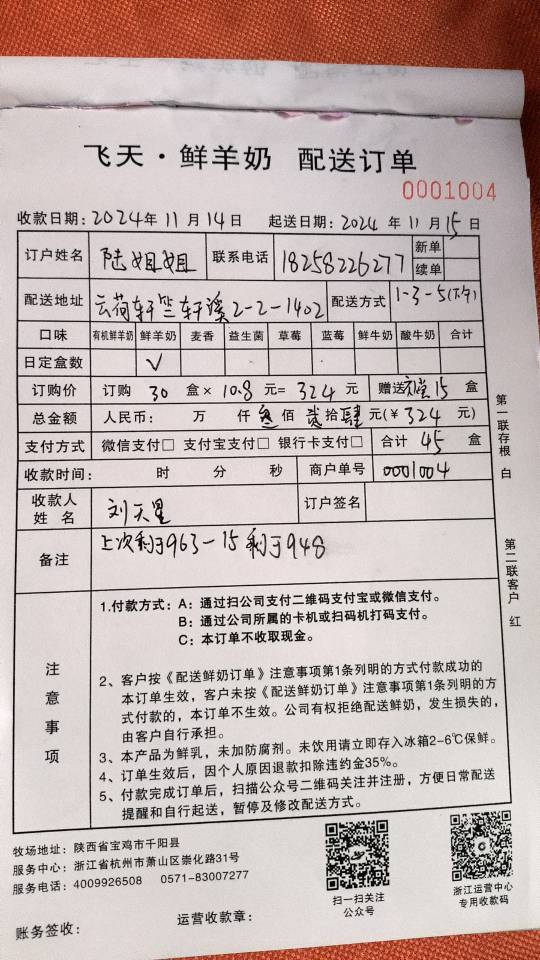 飞天·鲜羊奶 配送订单
0001004
收款日期：2024年11月14日 起送日期：2024年11月15日
订户姓名 陆姐姐 联系电话 18258226277 新单
续单
配送地址 云荷轩竺轩溪2-2-1402 配送方式 1-3-5(下午)
口味 有机鲜羊奶 鲜羊奶 麦香 益生菌 草莓 蓝莓 鲜牛奶 酸牛奶 合计
日定盒数 √
订购价 订购 30 盒× 10.8 元= 324 元 赠送 15 盒
总金额 人民币： 万 仟 叁佰 贰拾肆元(￥324 元)
支付方式 微信支付□ 支付宝支付□ 银行卡支付□ 合计 45 盒
收款时间： 时 分 秒 商户单号 0001004
收款人姓名 刘天星 订户签名
备注 上次剩于963-15剩于948
注意事项
1.付款方式：A：通过扫公司支付二维码支付宝或微信支付。
B：通过公司所属的卡机或扫码机打码支付。
C：本订单不收取现金。
2、客户按《配送鲜奶订单》注意事项第1条列明的方式付款成功的
本订单生效，客户未按《配送鲜奶订单》注意事项第1条列明的方
式付款的，本订单不生效。公司有权拒绝配送鲜奶，发生损失的，
由客户自行承担。
3、本产品为鲜乳，未加防腐剂。未饮用请立即存入冰箱2-6℃保鲜。
4、订单生效后，因个人原因退款扣除违约金35%。
5、付款完成订单后，扫描公众号二维码关注并注册，方便日常配送
提醒和自行起送，暂停及修改配送方式。
第一联存根 白
第二联客户 红
牧场地址：陕西省宝鸡市千阳县
服务中心：浙江省杭州市萧山区崇化路31号
服务电话：4009926508 0571-83007277
扫一扫关注
公众号
浙江运营中心
专用收款码
账务签收： 运营收款章：